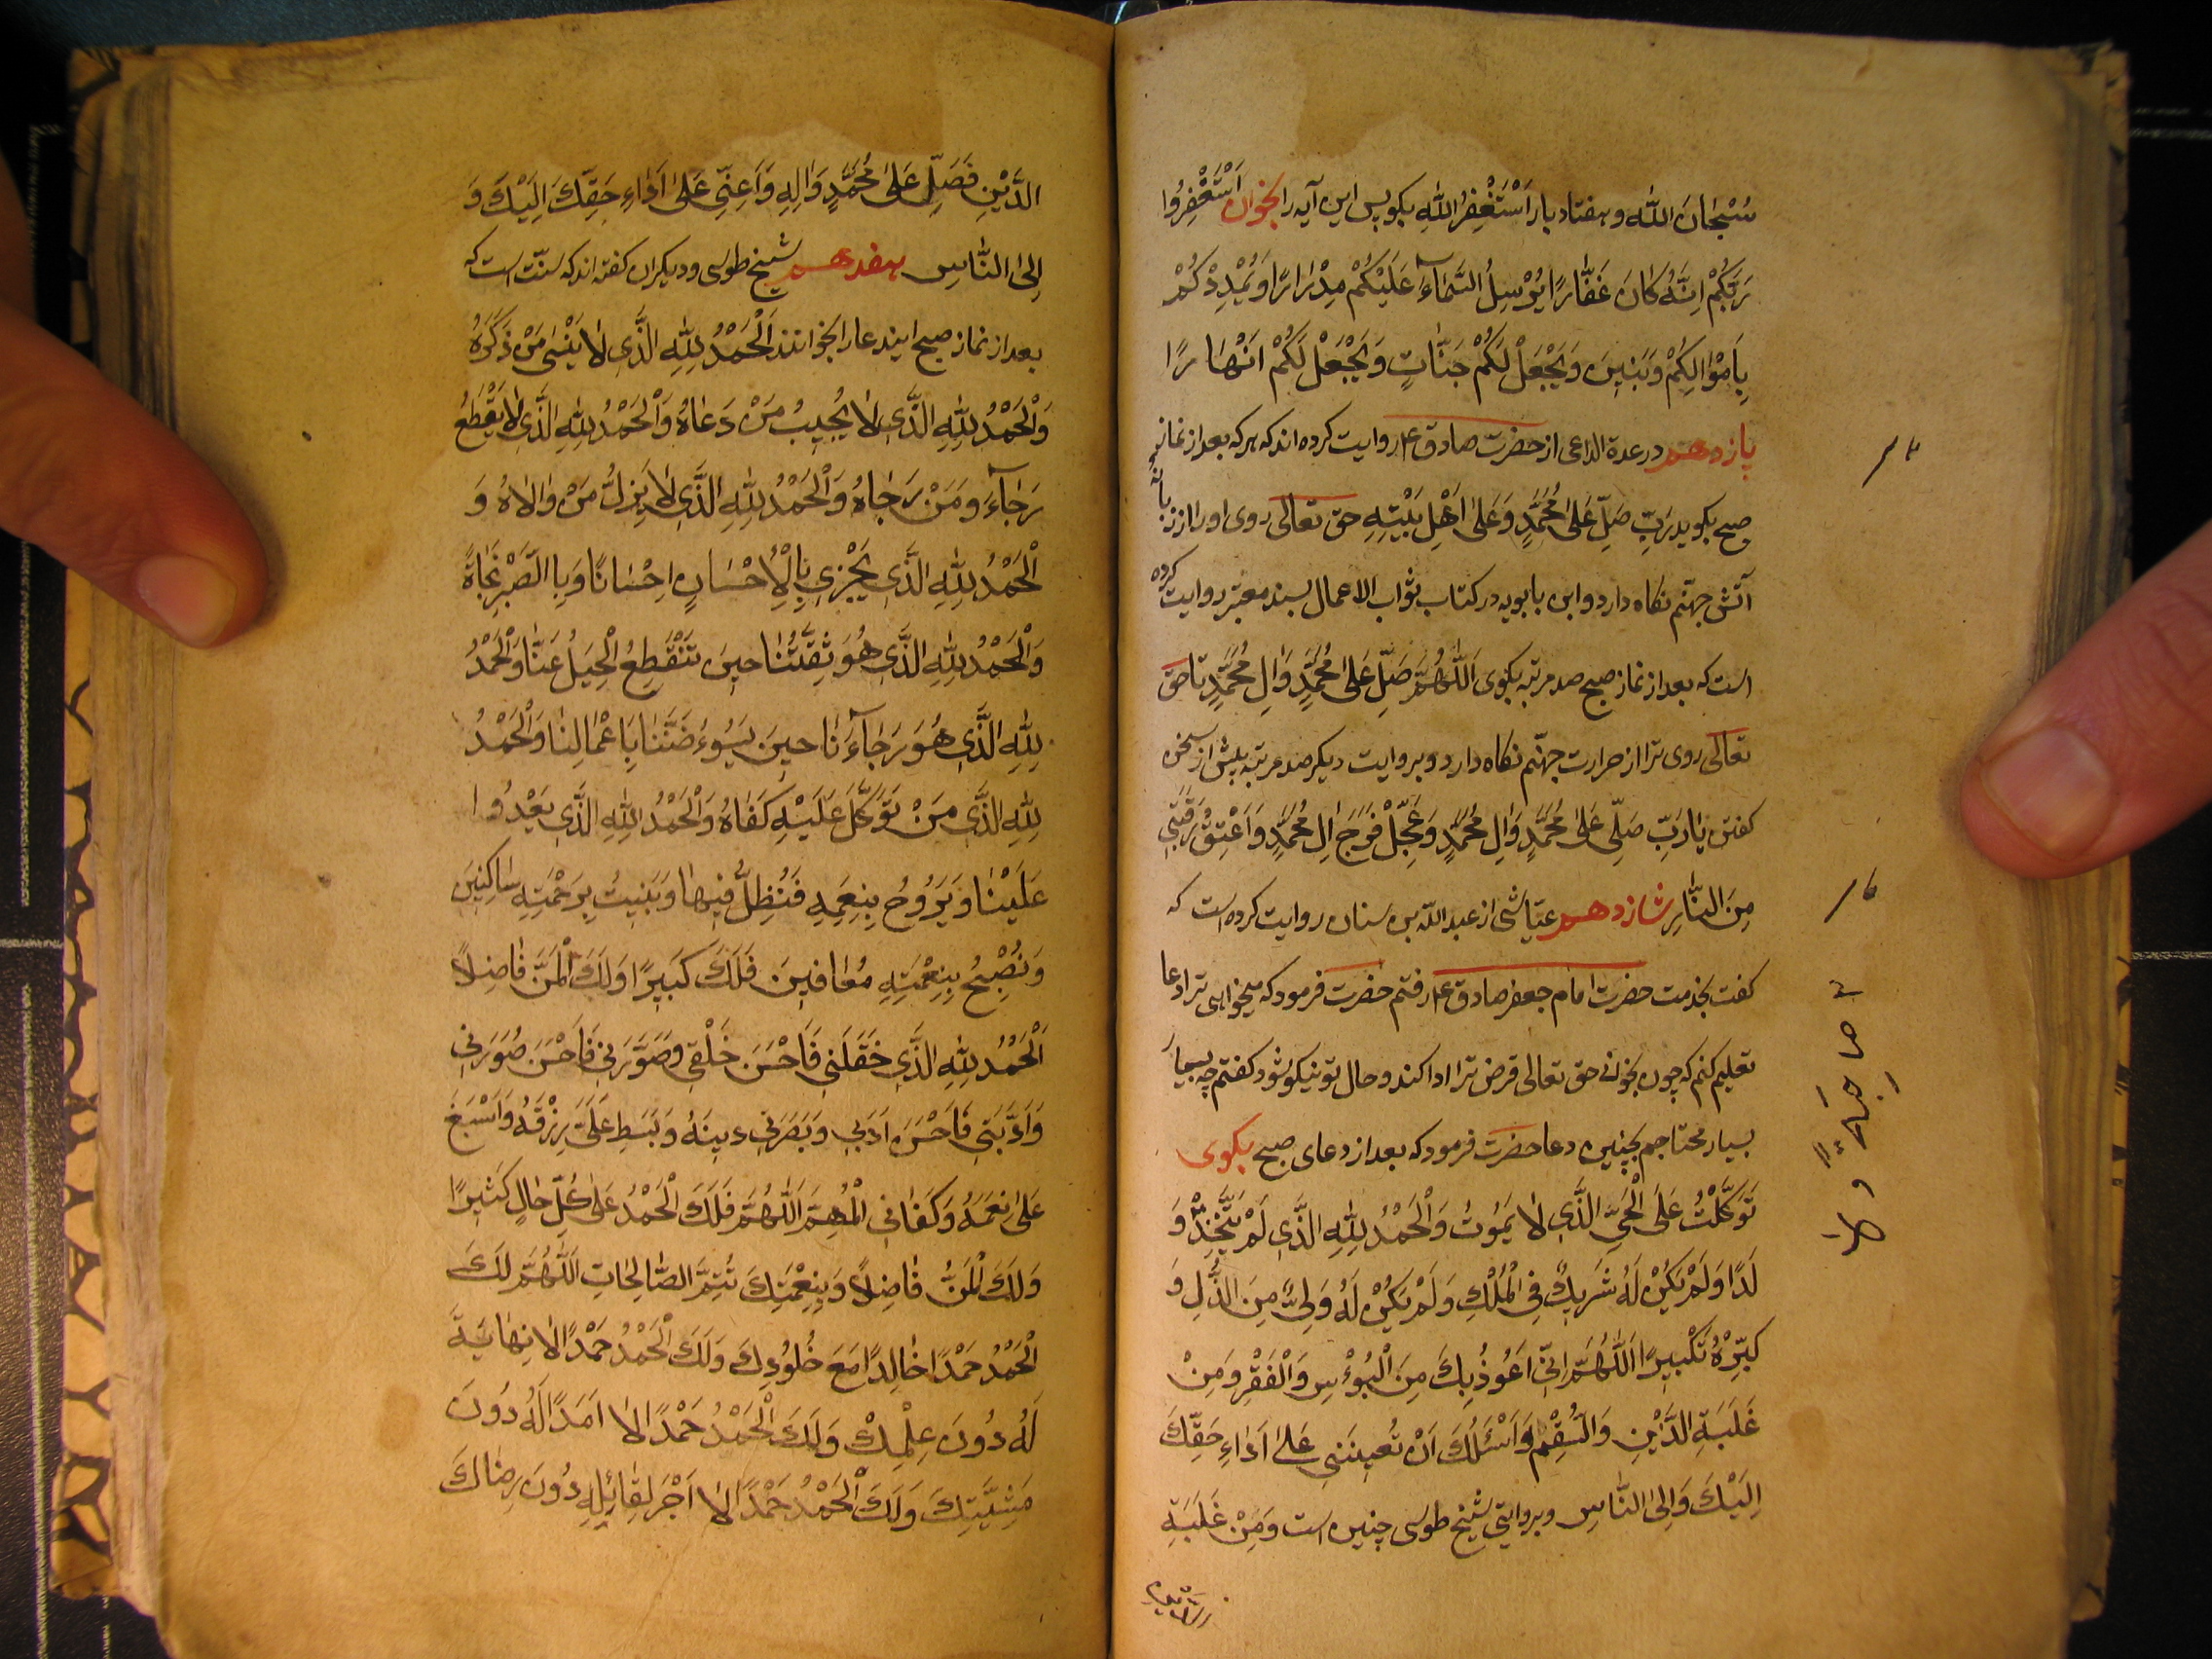 سُبْحَانَ اللّٰه و هفتاد بار اَسْتَغْفِرُ اللّٰهِ بکو پس این آیه را بخوان اَسْتَغْفِرُوا
رَبَّكُمْ اِنَّهُ كَانَ غَفَّارًا يُرْسِلُ السَّمَاۤءَ عَلَيْكُمْ مِدْرَارًا وَيُمْدِدْكُمْ
بِاَمْوَالِكُمْ وَبَنِينَ وَيَجْعَلْ لَكُمْ جَنَّاتٍ وَيَجْعَلْ لَكُمْ اَنْهَارًا
پازدهم در عدة الداعی از حضرت صادق ع روایت کرده اند که هر که بعد از نماز
صبح بکوید رَبِّ صَلِّ عَلىٰ مُحَمَّدٍ وَعَلىٰ اَهْلِ بَيْتِهِ حق تعالی روی او را از زبانه
آتش جهنّم نکاه دارد و ابن بابویه در کتاب ثواب الاعمال بسند معتبر روایت کرده
است که بعد از نماز صبح صد مرتبه بکوی اَللّٰهُمَّ صَلِّ عَلىٰ مُحَمَّدٍ وَاٰلِ مُحَمَّدٍ تا حق
تعالی روی ترا از حرارت جهنّم نکاه دارد و بروایت دیکر صد مرتبه پیش از سخن
کفتن یَا رَبِّ صَلِّی عَلىٰ مُحَمَّدٍ وَاٰلِ مُحَمَّدٍ وَعَجِّلْ فَرَجَ اٰلِ مُحَمَّدٍ وَاَعْتِقْ رَقَبَتِي
مِنَ النَّارِ شازدهم عیّاشی از عبد اللّه بن سنان روایت کرده است که
کفت بخدمت حضرت امام جعفر صادق ع رفتم حضرت فرمود که میخواهی ترا دعا
تعلیم کنم که چون بخوانی حق تعالی قرض ترا ادا کند و حال تو نیکو شود کفتم چه بسیار
بسیار محتاجم بچنین دعا حضرت فرمود که بعد از دعای صبح بکوی
تَوَكَّلْتُ عَلَى الْحَيِّ الَّذِي لَا يَمُوتُ وَالْحَمْدُ لِلّٰهِ الَّذِي لَمْ يَتَّخِذْ وَ
لَدًا وَلَمْ يَكُنْ لَهُ شَرِيكٌ فِي الْمُلْكِ وَلَمْ يَكُنْ لَهُ وَلِيٌّ مِنَ الذُّلِّ وَ
كَبِّرْهُ تَكْبِيرًا اَللّٰهُمَّ اِنِّي اَعُوذُ بِكَ مِنَ الْبُؤْسِ وَالْفَقْرِ وَمِنْ
غَلَبَةِ الدَّيْنِ وَالسُّقْمِ وَاَسْئَلُكَ اَنْ تُعِينَنِي عَلىٰ اَدَاءِ حَقِّكَ
اِلَيْكَ وَاِلَى النَّاسِ و بروایتی شیخ طوسی چنین است وَمِنْ غَلَبَةِ
الدَّيْنِ فَصَلِّ عَلىٰ مُحَمَّدٍ وَاٰلِهِ وَاَعِنِّي عَلىٰ اَدَاءِ حَقِّكَ اِلَيْكَ وَ
اِلَى النَّاسِ هفدهم شیخ طوسی و دیکران کفته اند که سنّت است که
بعد از نماز صبح ایندعا را بخوانند اَلْحَمْدُ لِلّٰهِ الَّذِي لَا يَنْسٰى مَنْ ذَكَرَهُ
وَالْحَمْدُ لِلّٰهِ الَّذِي لَا يُجِيبُ مَنْ دَعَاهُ وَالْحَمْدُ لِلّٰهِ الَّذِي لَا يَقْطَعُ
رَجَاۤءَ وَمَنْ رَجَاهُ وَالْحَمْدُ لِلّٰهِ الَّذِي لَا يَزِلُّ مَنْ وَالَاهُ وَ
الْحَمْدُ لِلّٰهِ الَّذِي يَجْزِي بِالْاِحْسَانِ اِحْسَانًا وَبِالصَّبْرِ نَجَاةً
وَالْحَمْدُ لِلّٰهِ الَّذِي هُوَ ثِقَتُنَا حِينَ تَنْقَطِعُ الْحِيَلُ عَنَّا وَالْحَمْدُ
لِلّٰهِ الَّذِي هُوَ رَجَاۤءُنَا حِينَ يَسُوءُ ضَنَّنَا بِاَعْمَالِنَا وَالْحَمْدُ
لِلّٰهِ الَّذِي مَنْ تَوَكَّلَ عَلَيْهِ كَفَاهُ وَالْحَمْدُ لِلّٰهِ الَّذِي يَغْدُوا
عَلَيْنَا وَيَرُوحُ بِنِعَمِهِ فَنُظِلُّ فِيهَا وَنَبِيتُ بِرَحْمَتِهِ سَاكِنِينَ
وَنُصْبِحُ بِنِعْمَتِهِ مُعَافِينَ فَلَكَ كَبِيرًا وَلَكَ الْمَنُّ فَاضِلًا
اَلْحَمْدُ لِلّٰهِ الَّذِي خَقَلَنِي فَاَحْسَنَ خَلْقِي وَصَوَّرَنِي فَاَحْسَنَ صُوَرَتِي
وَاَدَّبَنِي فَاَحْسَنَ اَدَبِي وَبَصَّرَنِي دِينَهُ وَبَسَطَ عَلَيَّ رِزْقَهُ وَاَسْبَغَ
عَلَيَّ نِعَمَهُ وَكَفَانِي الْمُهِمَّ اَللّٰهُمَّ فَلَكَ الْحَمْدُ عَلىٰ كُلِّ حَالٍ كَثِيرًا
وَلَكَ الْمَنُّ فَاضِلًا وَبِنِعْمَتِكَ تُتِمُّ الصَّالِحَاتِ اَللّٰهُمَّ لَكَ
الْحَمْدُ حَمْدًا خَالِدًا مَعَ خُلُودِكَ وَلَكَ الْحَمْدُ حَمْدًا لَا نِهَايَةَ
لَهُ دُونَ عِلْمِكَ وَلَكَ الْحَمْدُ حَمْدًا لَا اَمَدًا لَهُ دُونَ
مَشِيَّتِكَ وَلَكَ الْحَمْدُ حَمْدًا لَا اَجْرَ لِقَائِلِهِ دُونَ رِضَاكَ